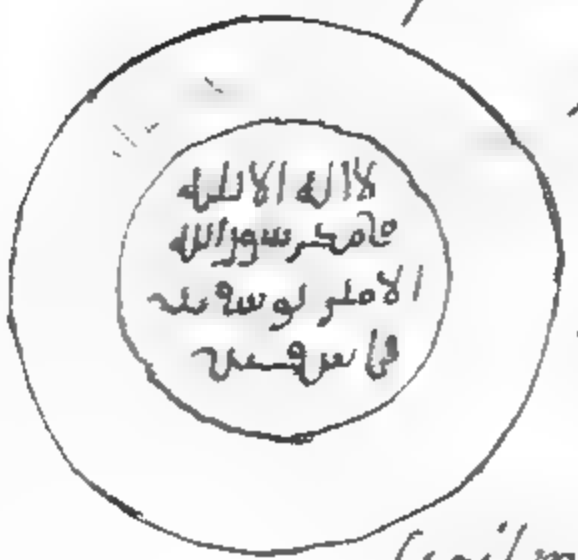 لا اله الا لله
محمد رسول الله
الامير يوسف بن
تاشفين